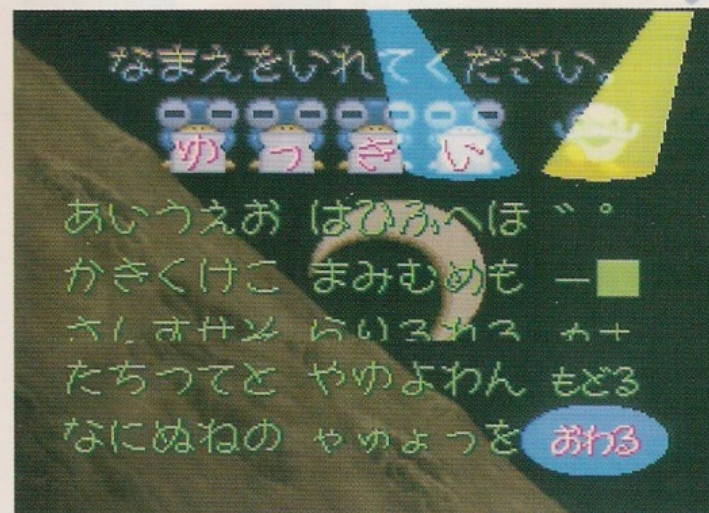 なまえをいれてください。
ゆっきい
あいうえお はひふへほ ゛゜
かきくけこ まみむめも ー■
さしすせそ らりるれろ
たちつてと やゆよわん もどる
なにぬねの ゃゅょっを おわる